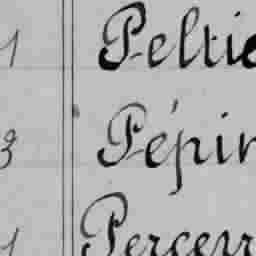 1 Peltie
3 Pépin
1 Perceur